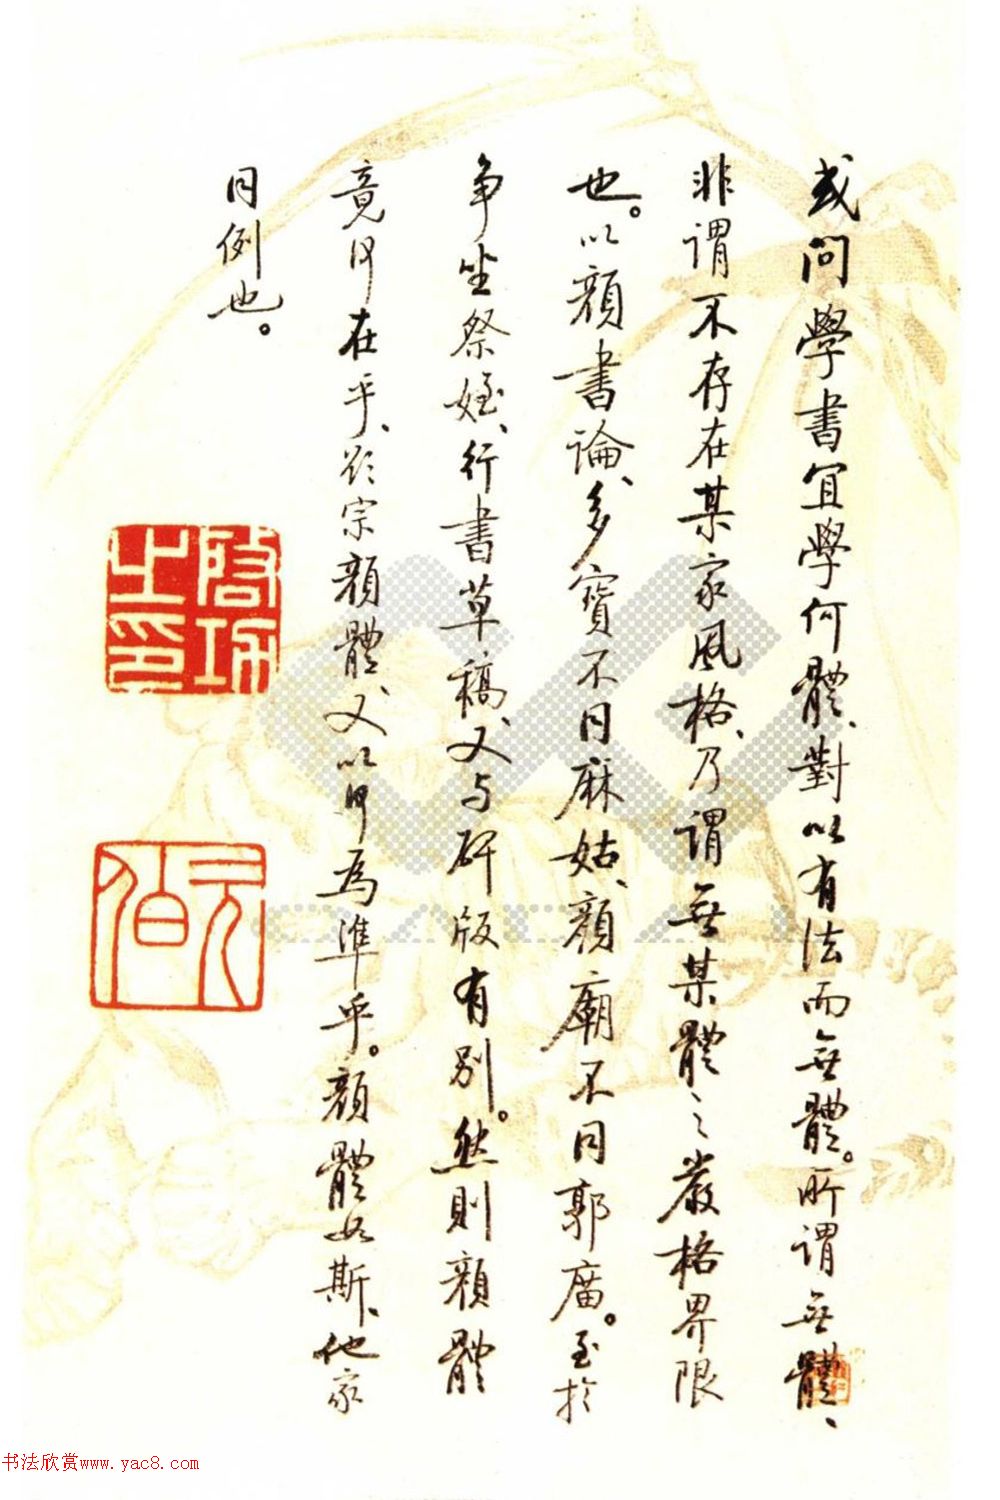 或问學書宜學何體、對以有法而无體。所谓无體、
非谓不存在某家風格、乃谓无某體之嚴格界限
也。以顏書論、多寶不同麻姑、顏廟不同郭廟。至於
争坐祭姪、行書草稿、又与碑版有别。然則顏體
竟何在乎、欲宗顏體、又以何為準乎。顏體如斯、他家
同例也。
啓功
之印
元白
书法欣赏www.yac8.com